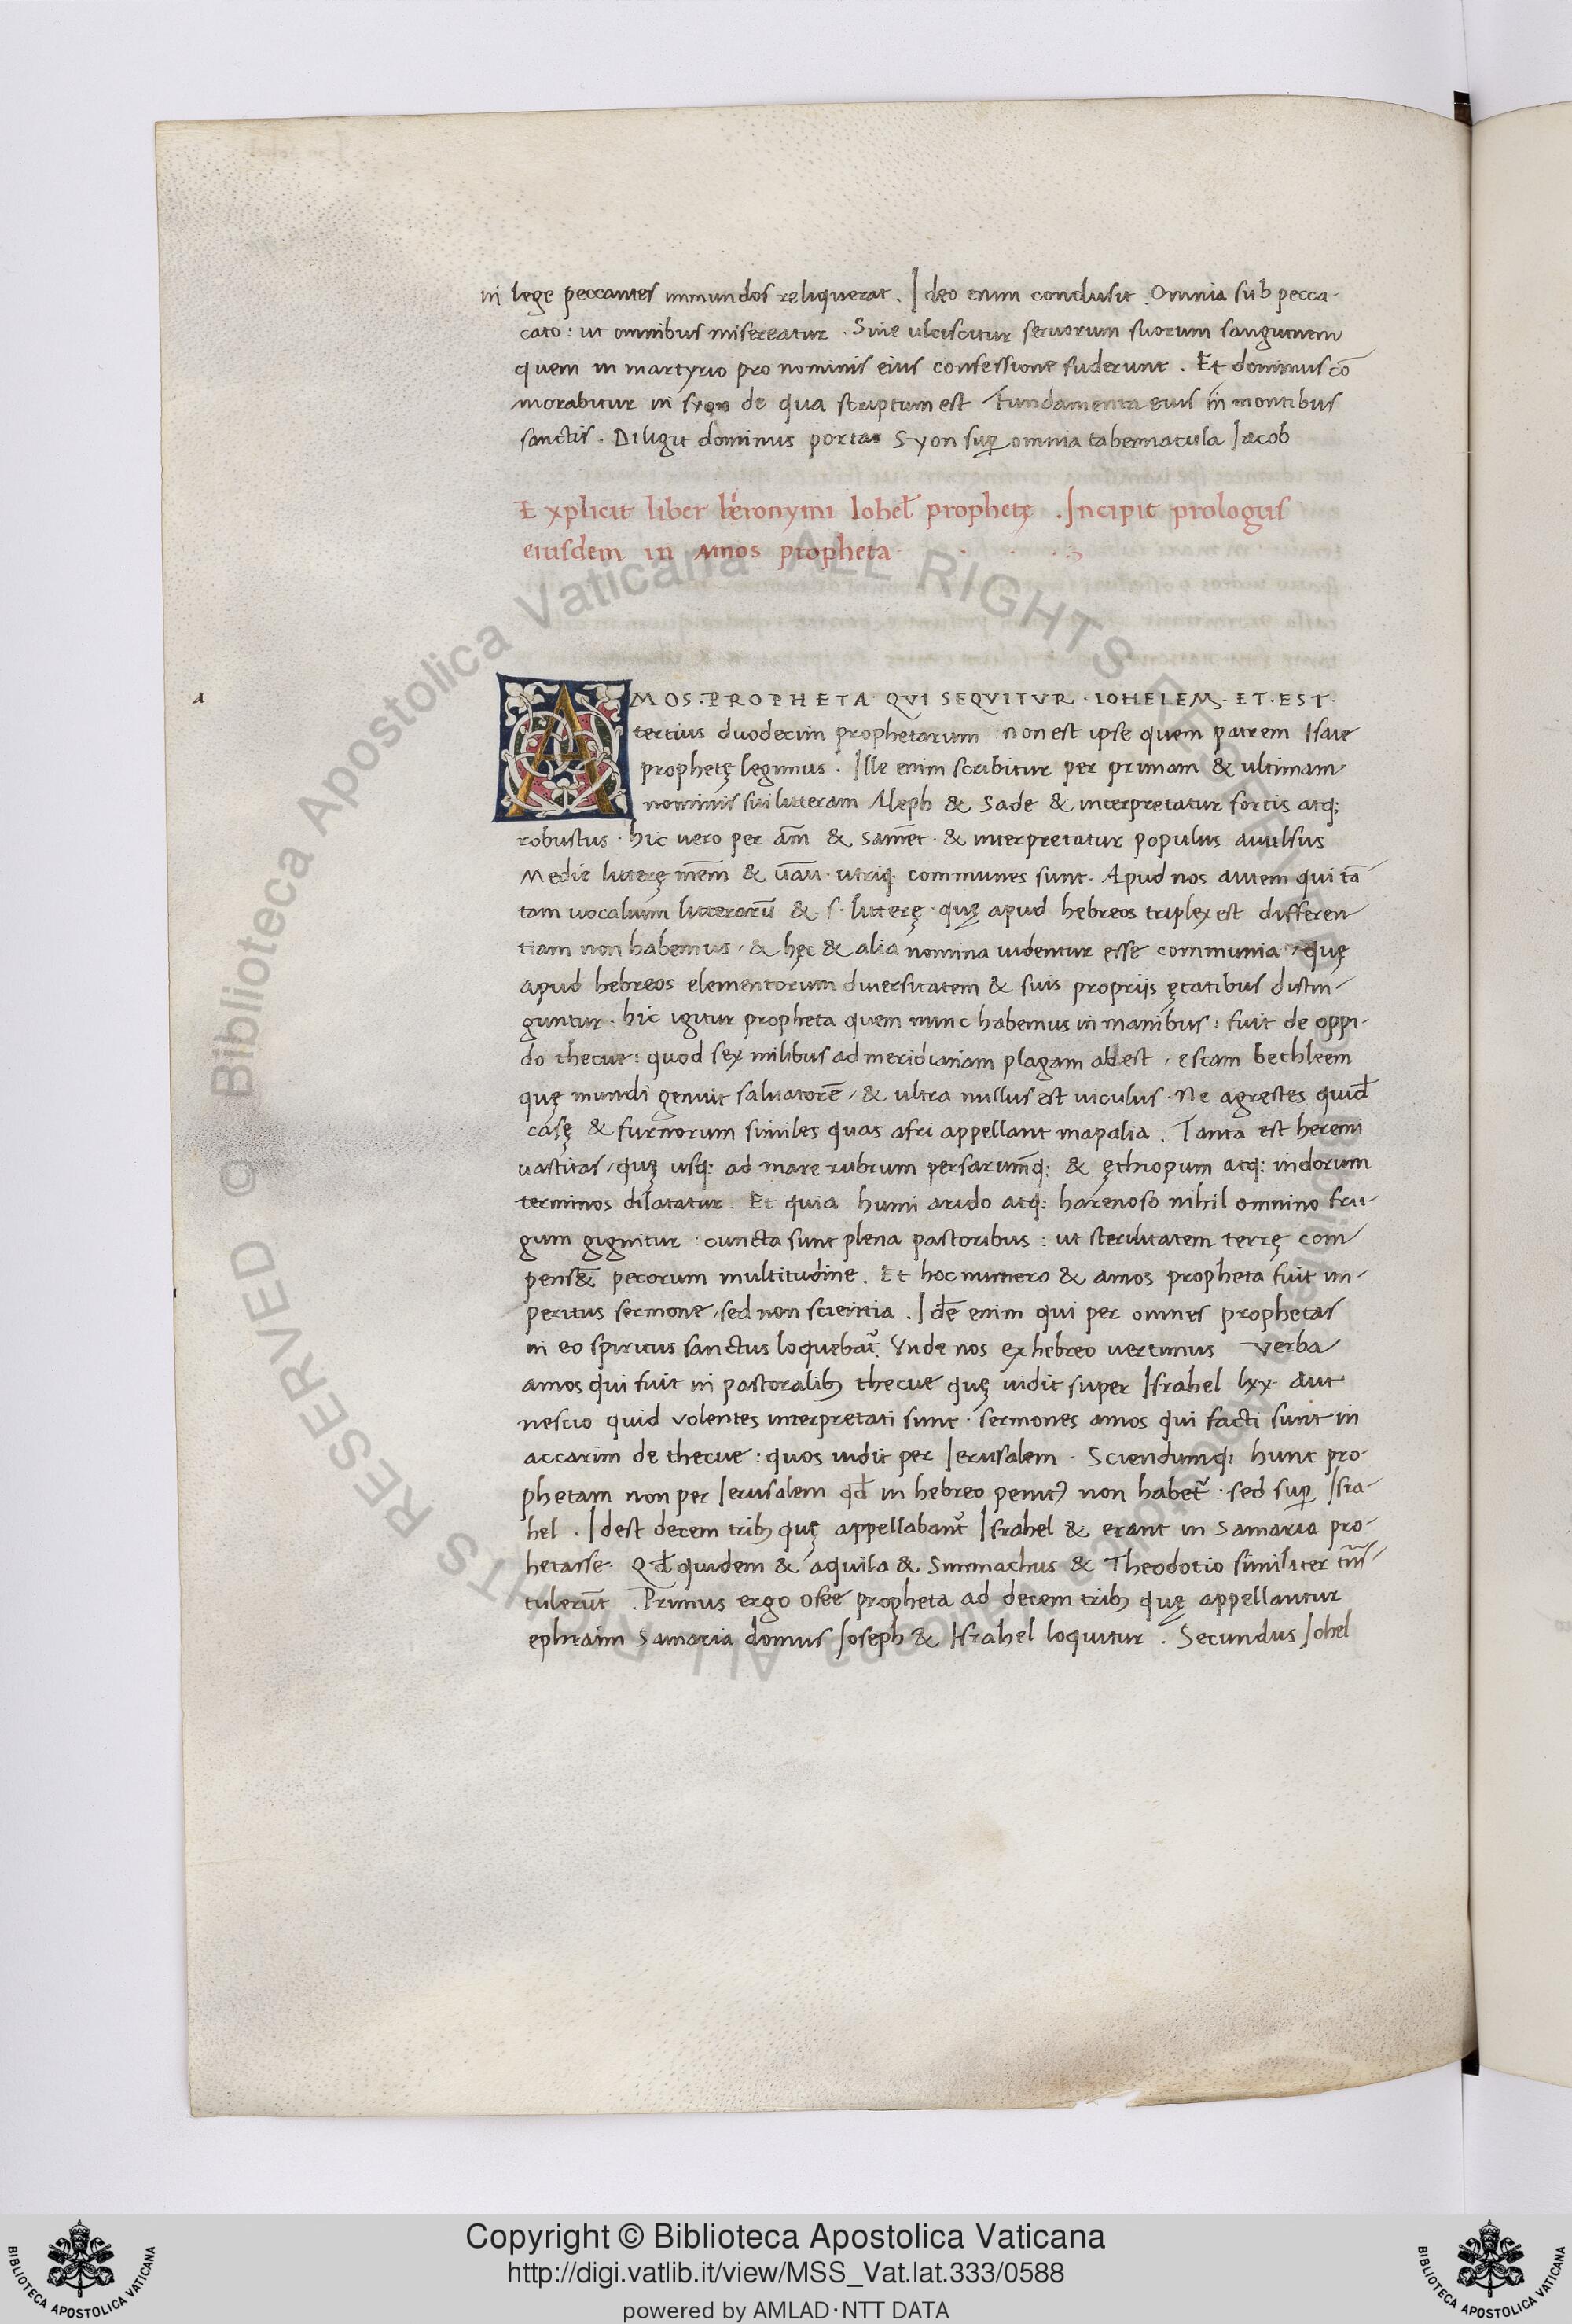 in lege peccantes inmundos reliquerat. Ideo enim conclusit. Omnia sub pecca-
cato: ut omnibus misereatur. Siue ulciscitur seruorum suorum sanguinem
quem in martyrio pro nominis eius confessione fuderunt. Et dominus cō
morabitur in syon de qua scriptum est Fundamenta eius in montibus
sanctis. Diligit dominus portas Syon sup̄ omnia tabernacula Iacob
Explicit liber hieronymi Iohel̄ prophetę. Incipit prologus
eiusdem in Amos propheta
a
AMOS·PROPHETA·QVI SEQVITVR·IOHELEM·ET·EST·
tertius duodecim prophetarum non est ipse quem patrem Isaie
prophetę legimus. Ille enim scribitur per primam & ultimam
nominis sui litteram Aleph & Sade & interpretatur fortis atq:
robustus. hic uero per am̄ & samet̄. & interpretatur populus auulsus
Medie litterę mem̄ & uau̅. utriq. communes sunt. Apud nos autem qui tā
tam uocalium litterarū & s. litterę. quę apud hebreos triplex est differen-
tiam non habemus, & hęc & alia nomina uidentur esse communia, quę
apud hebreos elementorum diuersitatem & suis proprijs ętatibus distin-
guntur. hic igitur propheta quem nunc habemus in manibus: fuit de oppi-
do thecue: quod sex milibus ad meridianam plagam abest, escam bethleem
quę mundi genuit saluatorē, & ultra nullus est uiculus. Ne agrestes quid̄
casę & furnorum similes quas afri appellant mapalia. Tanta est heremi
uastitas, quę usq: ad mare rubrum persarumq̄: & ęthiopum atq: indorum
terminos dilatatur. Et quia humi arido atq: harenoso nihil omnino fru-
gum gignitur: cuncta sunt plena pastoribus: ut sterilitatem terrę com
pens& pecorum multitudine. Et hoc numero & amos propheta fuit im-
peritus sermone, sed non scientia. Idē enim qui per omnes prophetas
in eo spiritus sanctus loquebat᷑. Vnde nos ex hebreo uertimus Verba
amos qui fuit in pastoralibꝫ thecue quę uidit super Israhel lxx. aut
nescio quid volentes interpretati sunt. sermones amos qui facti sunt in
accarim de thecue: quos uidit per Ierusalem. Sciendumq: hunc pro-
phetam non per Ierusalem qd̄ in hebreo penitꝰ non habet᷑: sed sup̄ Isra-
hel. Idest decem tribꝫ quę appellabant᷑ Israhel & erant in Samaria pro-
hetasse. Qd̄ quidem & aquila & Simmachus & Theodotio similiter trās
tulerūt. Primus ergo osee propheta ad decem tribꝫ quę appellantur
ephraim Samaria domus Ioseph & Israhel loquitur. Secundus Iohel
© Biblioteca Apostolica Vaticana ALL RIGHTS RESERVED
Copyright © Biblioteca Apostolica Vaticana
http://digi.vatlib.it/view/MSS_Vat.lat.333/0588
powered by AMLAD·NTT DATA
BIBLIOTECA APOSTOLICA VATICANA
BIBLIOTECA APOSTOLICA VATICANA